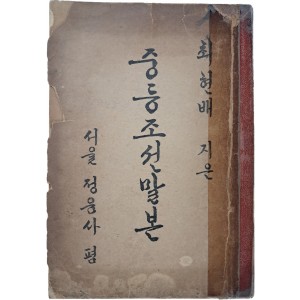 최현배 지은
중등조선말본
서울 정음사 펴냄